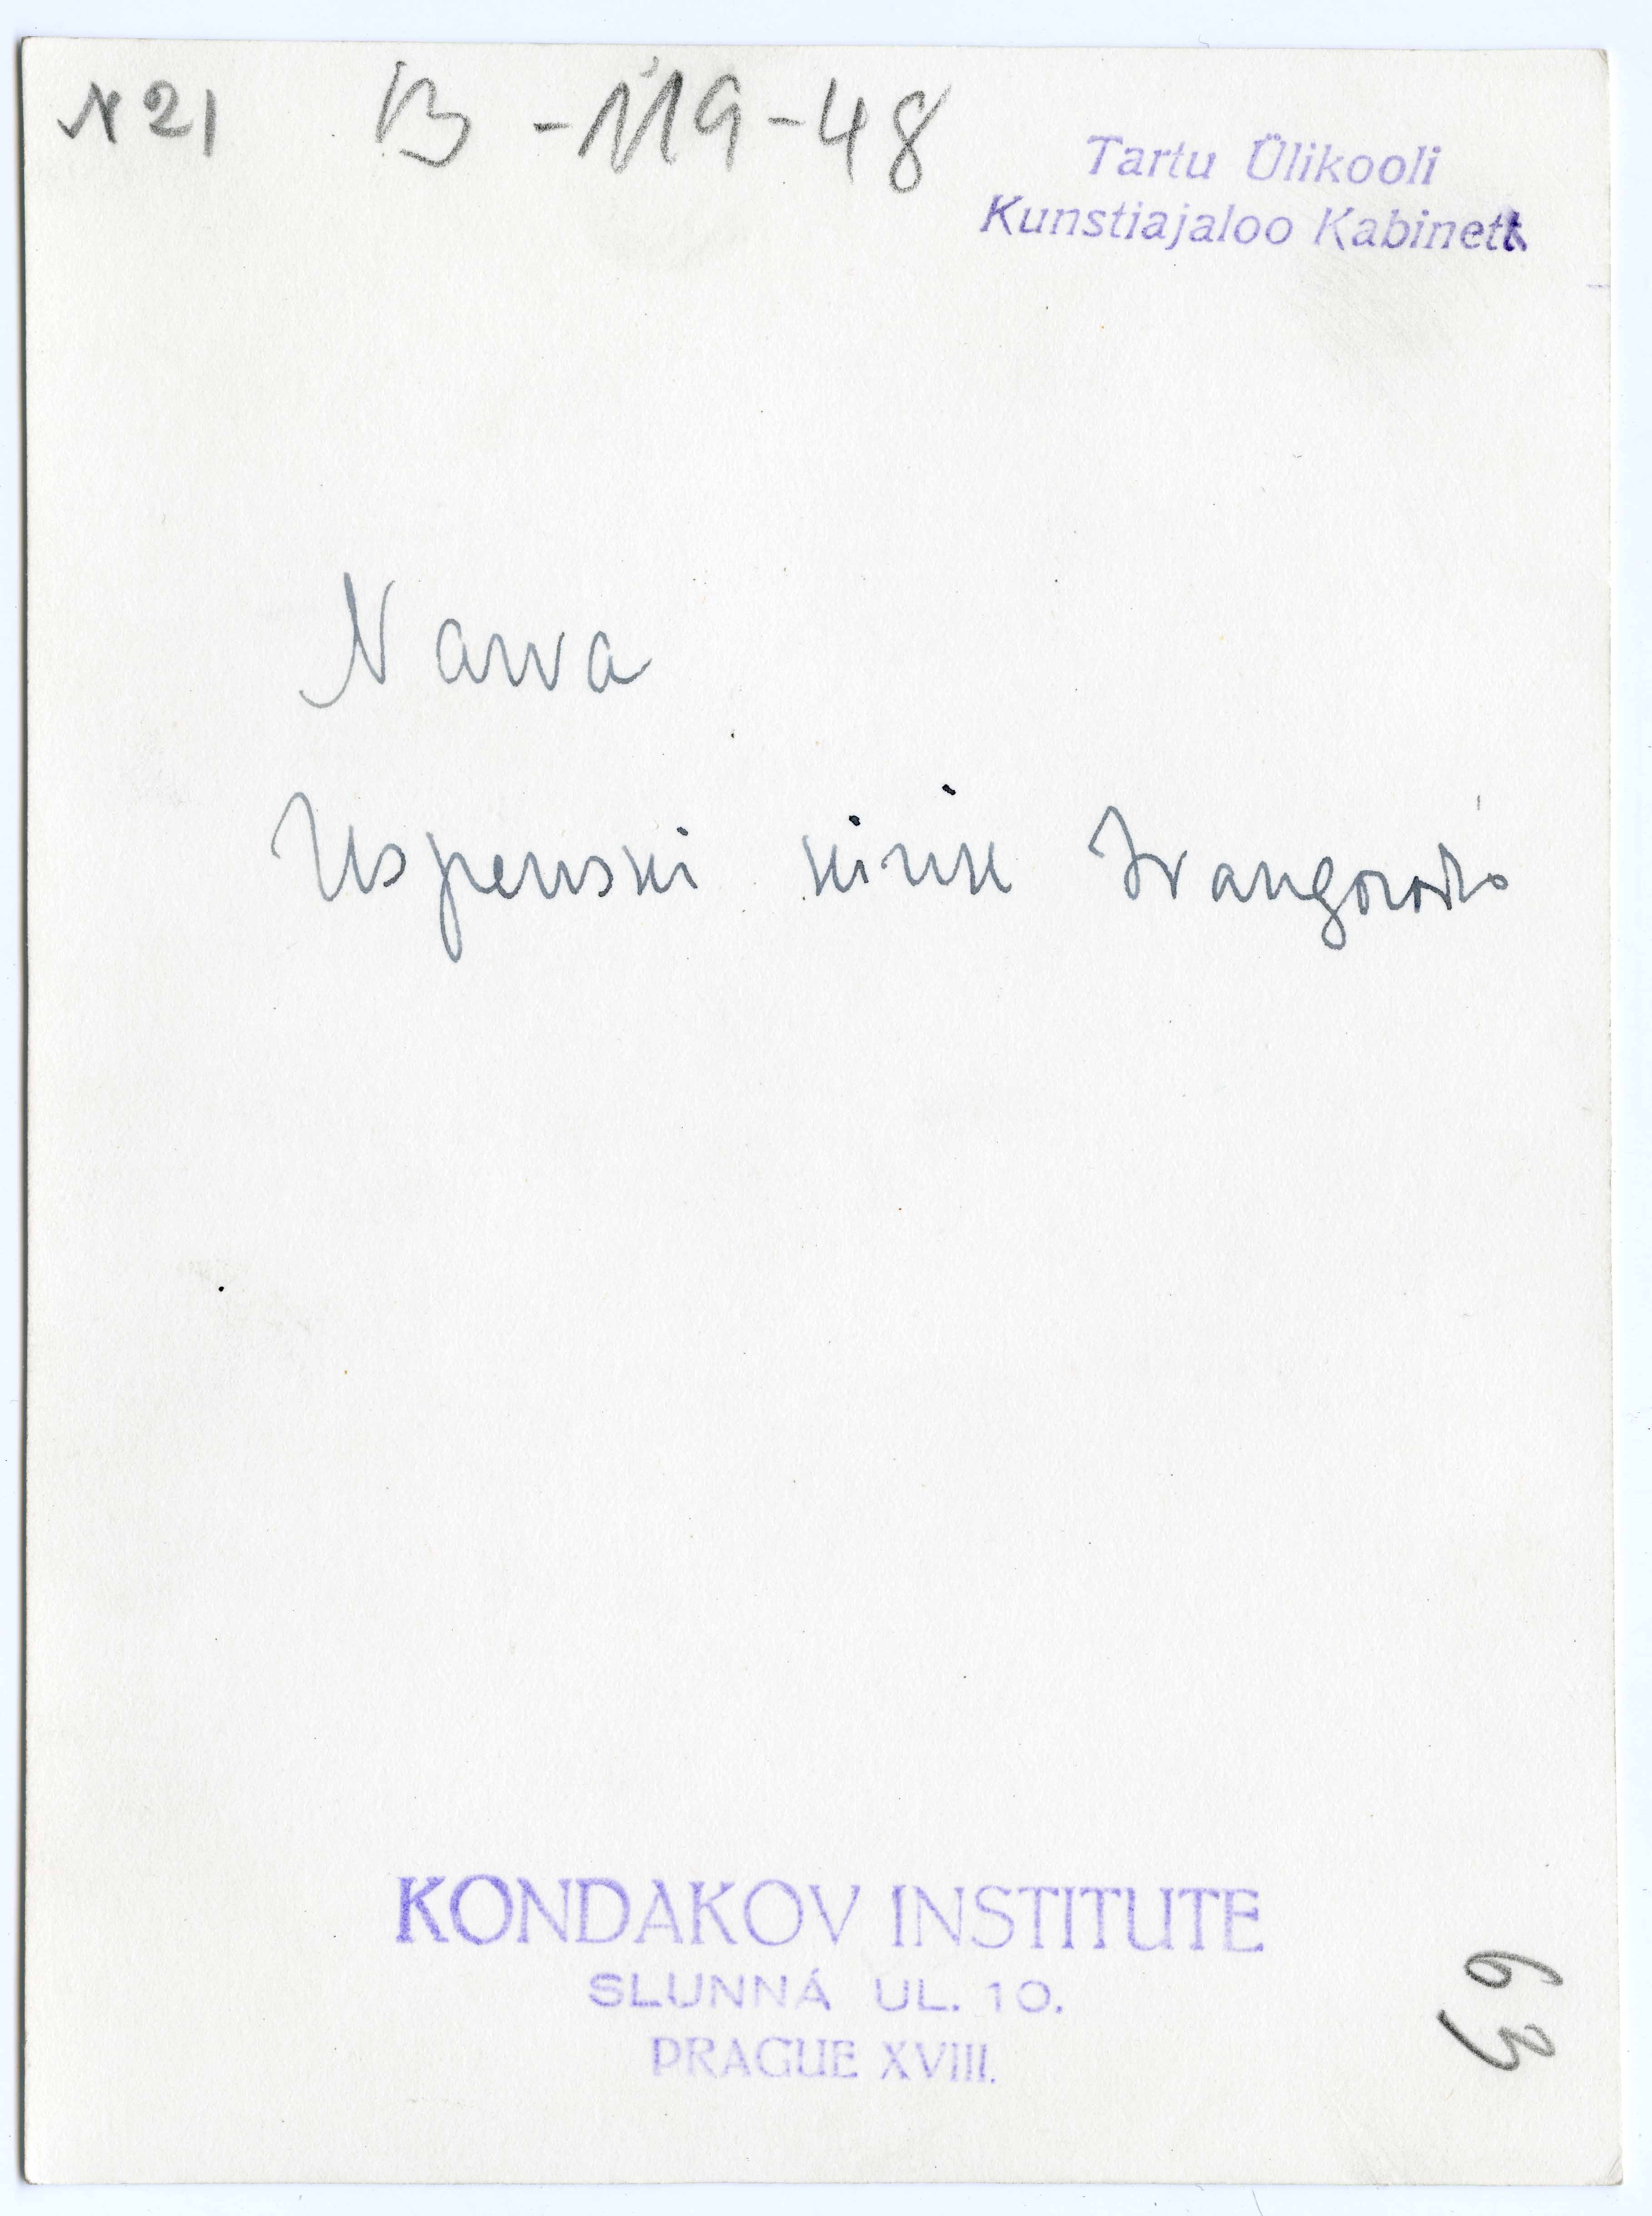 N 21 B - 119 - 48
Tartu Ülikooli
Kunstiajaloo Kabinett
Narva
Uspenski kirik Ivangorodis
KONDAKOV INSTITUTE
SLUNNÁ UL. 10.
PRAGUE XVIII.
63